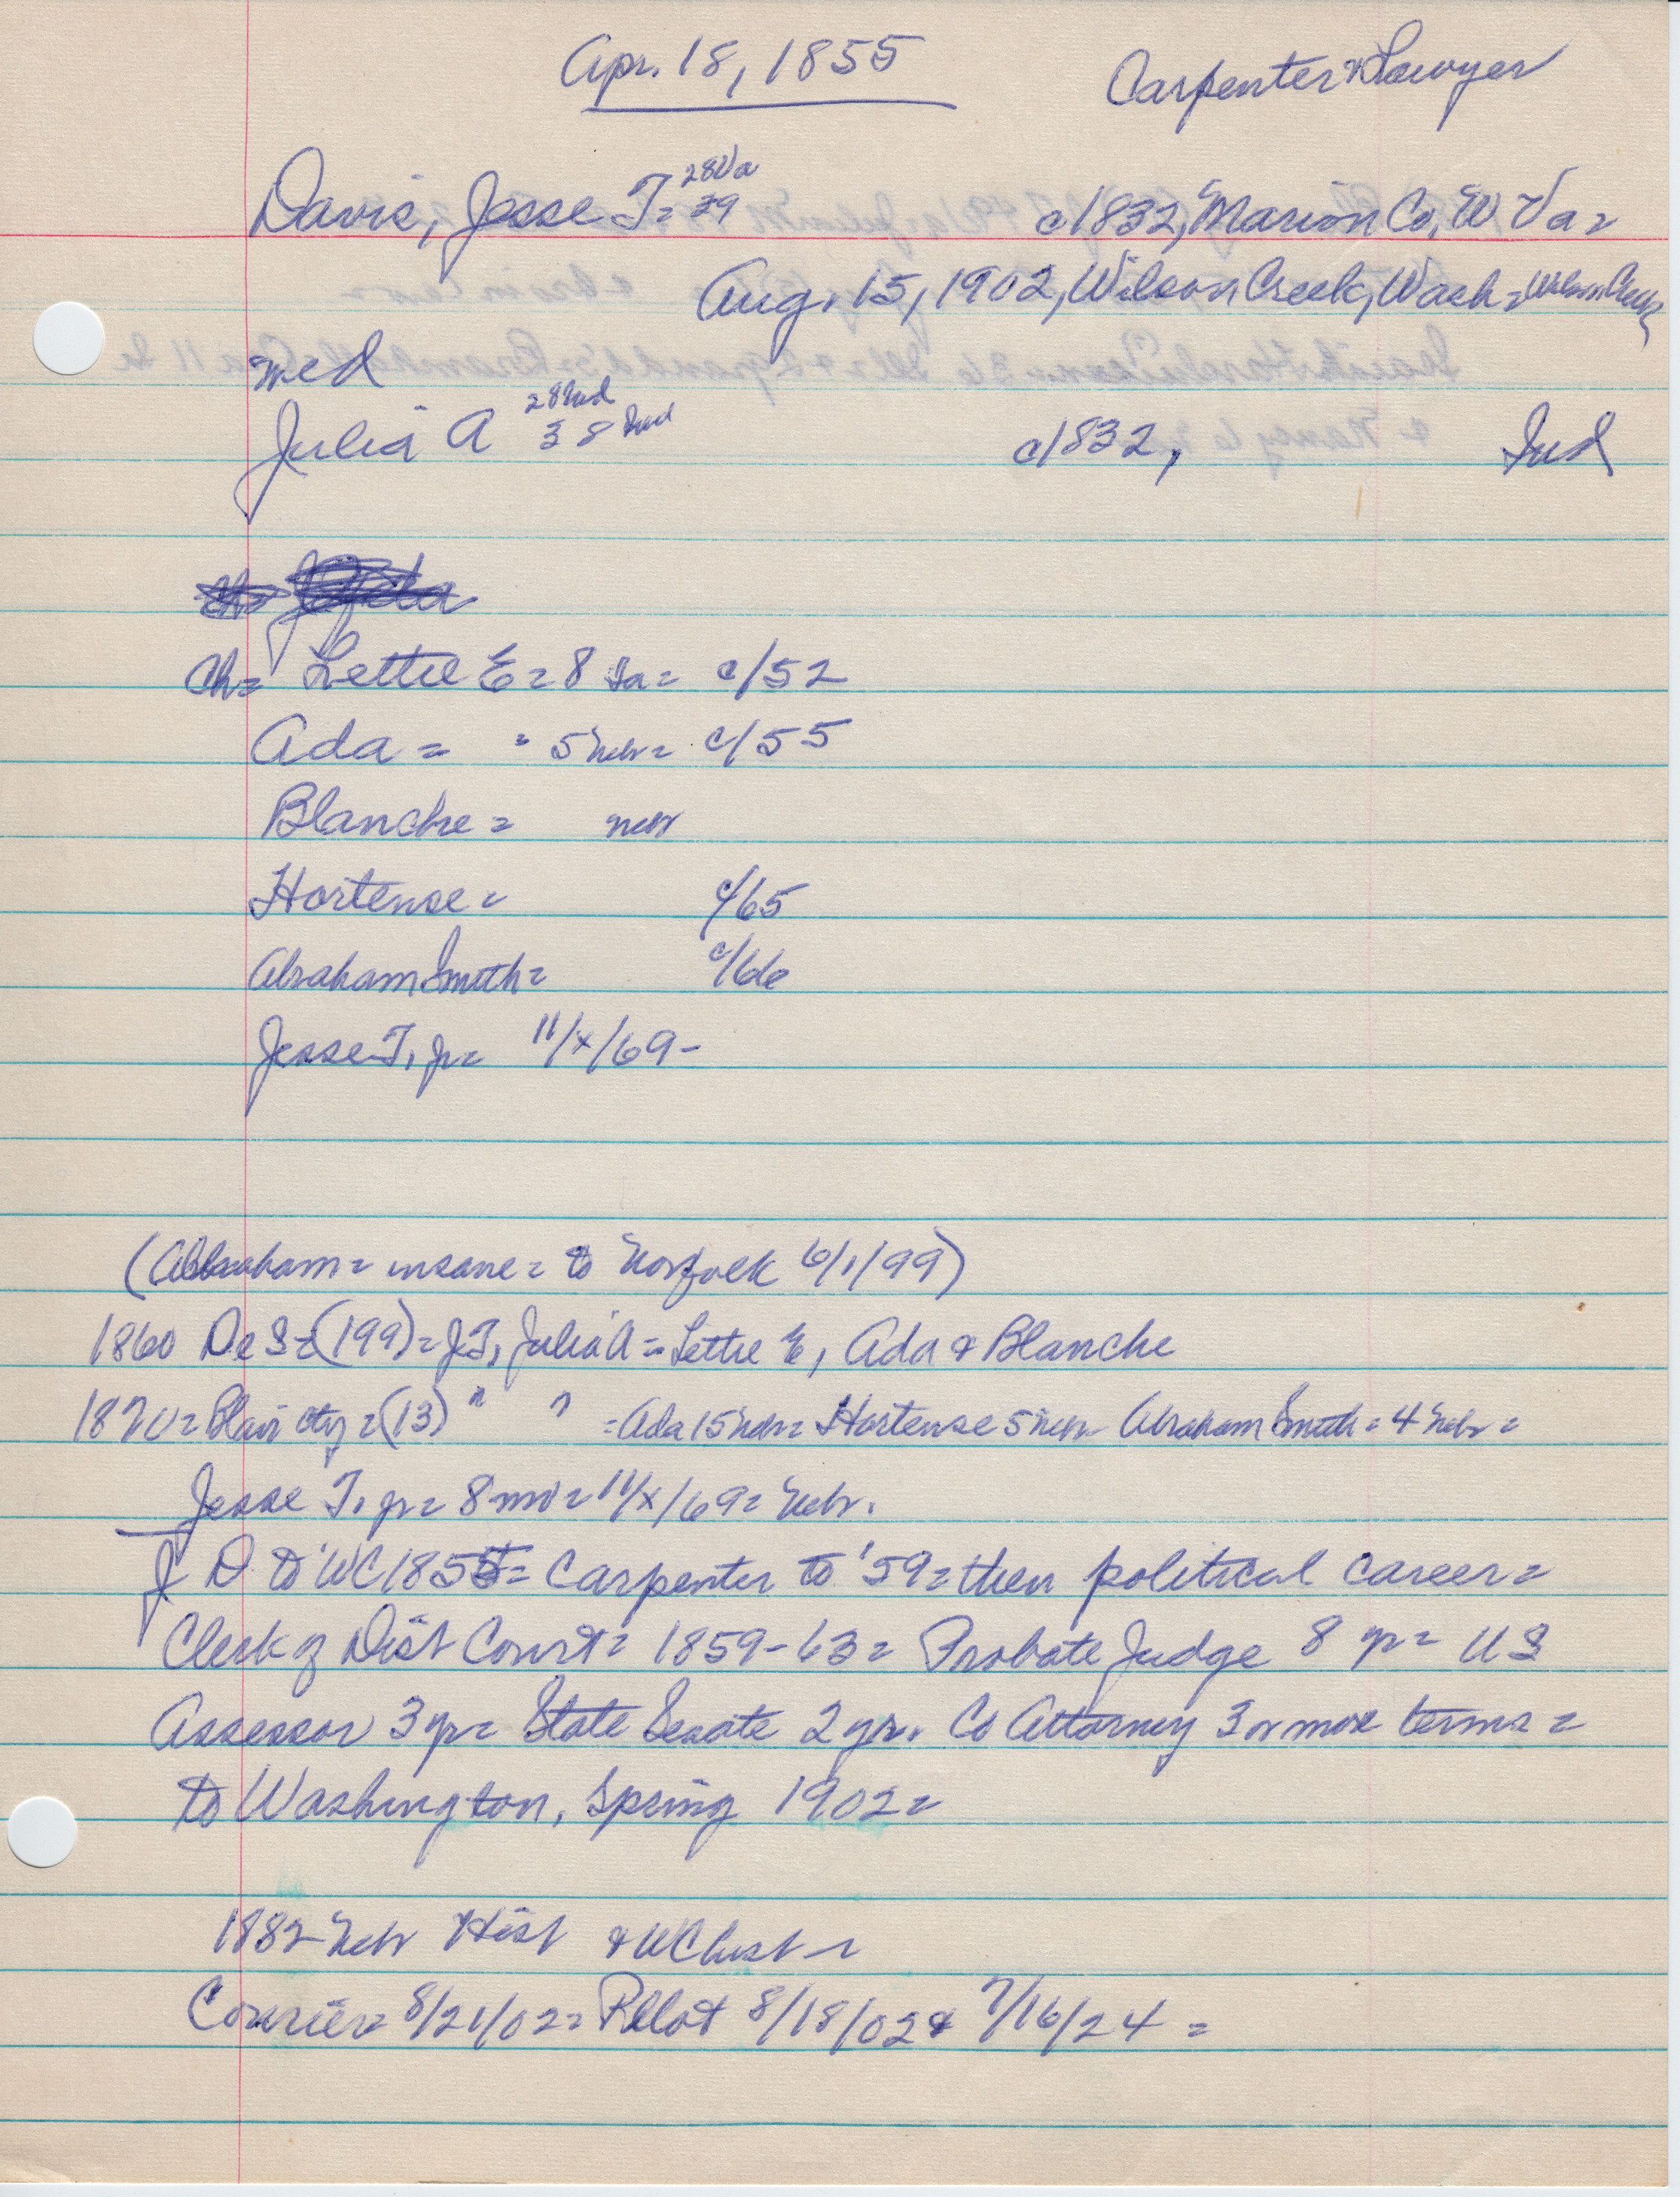 Apr. 18, 1855
Carpenter & Lawyer
Davis, Jesse T = 28 Va 39
c/1832, Marion Co, W Va =
Aug. 15, 1902, Wilson Creek, Wash = Wilson Creek
med
Julia A 28 Ind 38 Ind
c/1832, Ind
Ch= Lettie E = 8 Ia = c/52
Ada = " 5 Nebr = c/55
Blanche = Nebr
Hortense = c/65
Abraham Smith = c/66
Jesse T, jr = 11/x/69 -
(Abraham = insane = to Norfolk 6/1/99)
1860 De S = (199) = J T, Julia A = Lettie E, Ada & Blanche
1870 = Blair cty = (13) " " = Ada 15 Nebr = Hortense 5 Nebr - Abraham Smith = 4 Nebr =
Jesse T, jr = 8 mo = 11/x/69 = Nebr.
J D to WC 1855 = Carpenter to '59 = then political career =
Clerk of Dist Court = 1859-63 = Probate Judge 8 yr = U S
Assessor 3 yr = State Senate 2 yr. Co Attorney 3 or more terms =
to Washington, Spring 1902 =
1882 Nebr Hist & WC hist =
Courier = 8/21/02 = Pilot 8/18/02 & 7/16/24 =